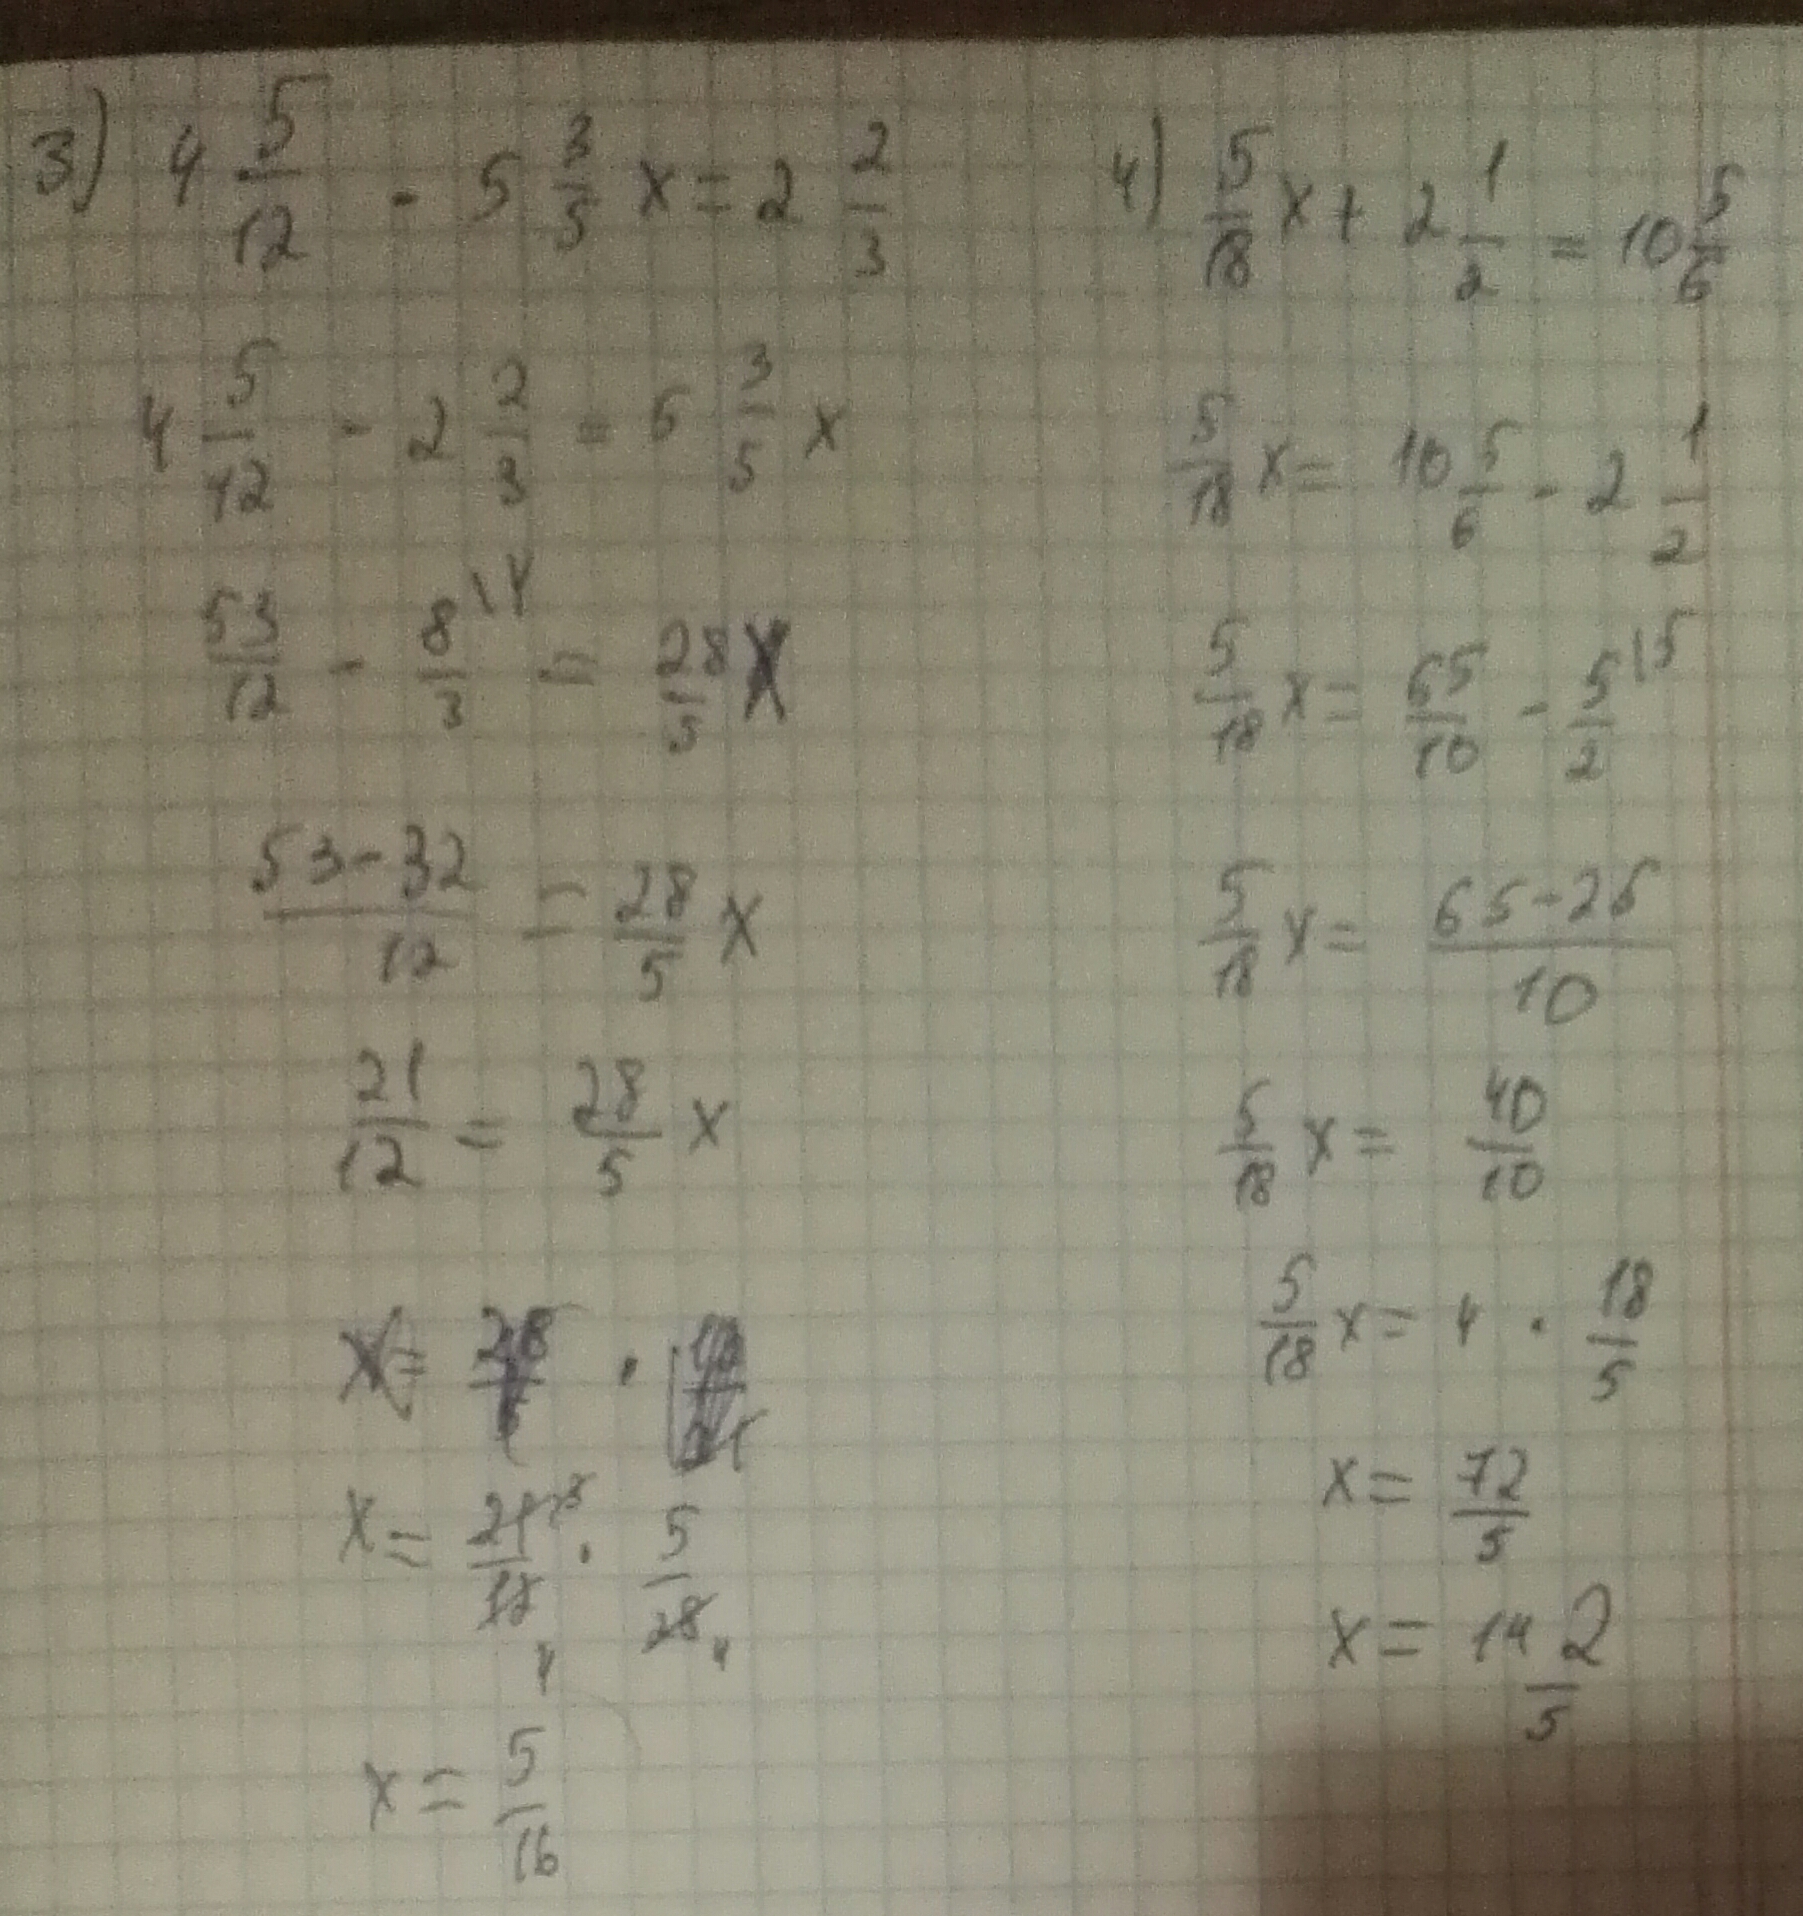 3) 4 5/12 - 5 3/5 x = 2 2/3
4 5/12 - 2 2/3 = 5 3/5 x
53/12 - 8/3 \4 = 28/5 x
53-32/12 = 28/5 x
21/12 = 28/5 x
x = 21 3/12 4 · 5/28 4
x = 5/16
4) 5/18 x + 2 1/2 = 10 5/6
5/18 x = 10 5/6 - 2 1/2
5/18 x = 65/10 - 5/2 \5
5/18 x = 65-25/10
5/18 x = 40/10
5/18 x = 4 · 18/5
x = 72/5
x = 14 2/5